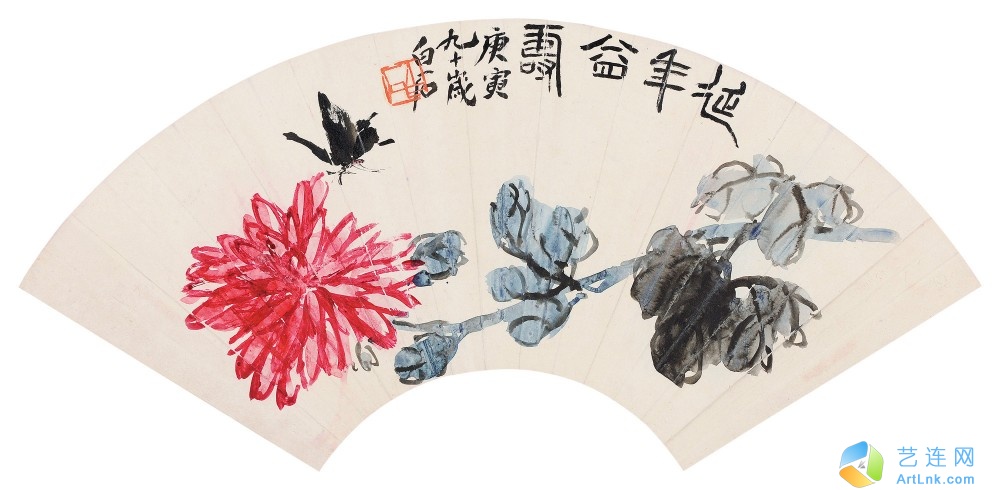 延年益壽
庚寅
九十歲
白石
艺连网
ArtLnk.com